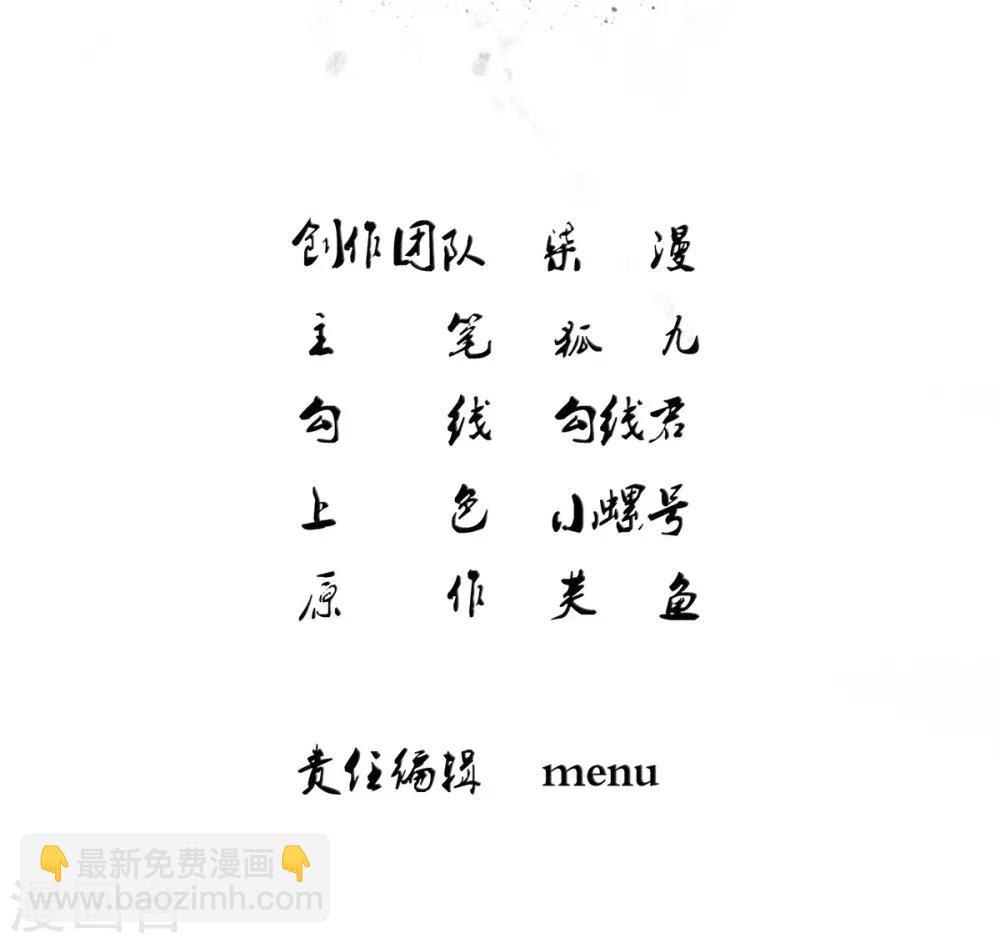 创作团队 柒 漫
主 笔 狐 九
勾 线 勾线君
上 色 小螺号
原 作 芙 鱼
责任编辑 menu
👇最新免费漫画👇
www.baozimh.com
漫画台